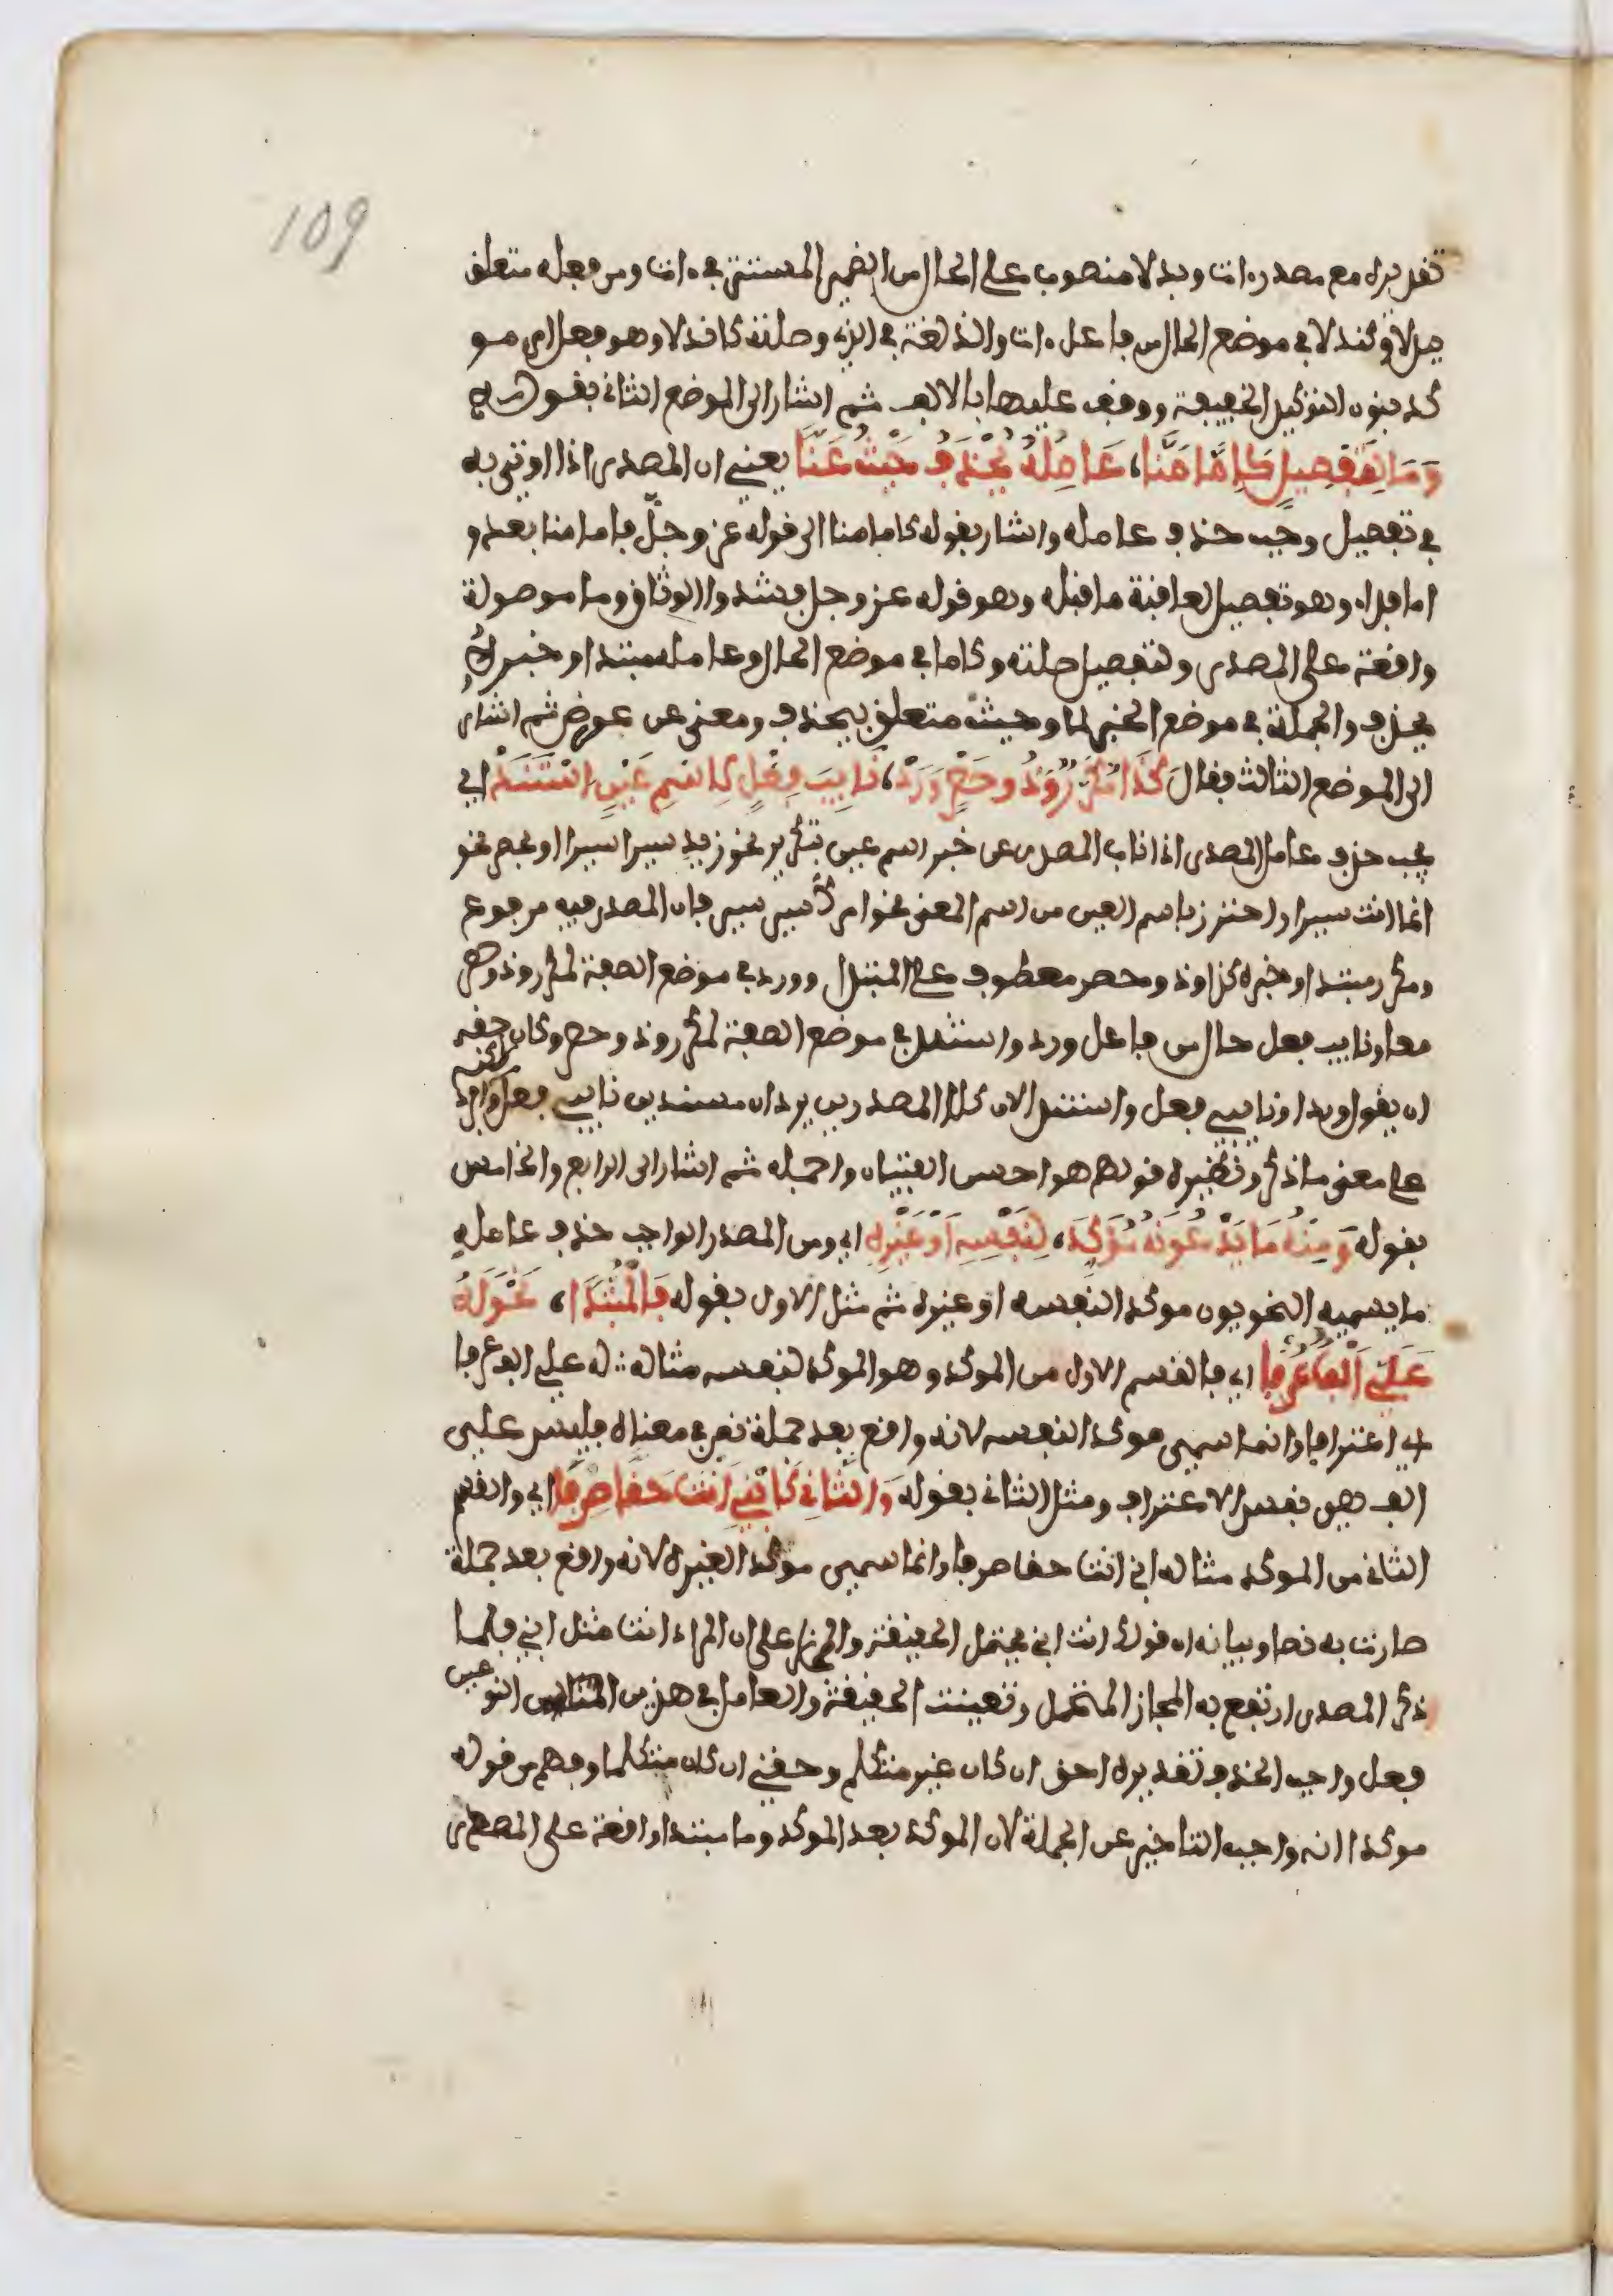 109
تقديره مع مصدر ءات وبدلا منصوب على الحال من الضمير المستتر في ءات ومن فعله متعلق
ببدلا وكندلا في موضع الحال من فاعل ءات والذ لغة في الذي وصلته كاندلا وهو فعل امر مو
كد بنون التوكيد الخفيفة ووقف عليها بالالف ثم اشار الى الموضع الثاني بقوله
وَمَا لِتَفْصِيلٍ كَإِمَّا مَنَّا، عَامِلُهُ يُحْذَفُ حَيْثُ عَنَّا يعني ان المصدر اذا اوتي به
في تفصيل وجب حذف عامله واشار بقوله كاما منا الى قوله عز وجل فاما منا بعد و
اما فداء وهو تفصيل لعاقبة ما قبله وهو قوله عز وجل فشدوا الوثاق وما موصولة
واقعة على المصدر ولتفصيل صلته وكاما في موضع الحال وعامله مبتدا وخبره
يحذف والجملة في موضع الخبر لما وحيث متعلق بيحذف ومعنى عن عرض ثم اشار
الى الموضع الثالث فقال كَذَا مُكَرَّرٌ وَذُو حَصْرٍ وَرَدْ، نَايِبَ فِعْلٍ لِاسْمِ عَيْنٍ اسْتَنَدْ اي
يجب حذف عامل المصدر اذا ناب المصدر عن خبر اسم عين بتكرير نحو زيد سيرا سيرا او بحصر نحو
انما انت سيرا واحترز باسم العين من اسم المعنى نحو امرك سير سير فان المصدر فيه مرفوع
ومكرر مبتدا وخبره كذا وذو حصر معطوف على المبتدا وورد في موضع الصفة لمكرر وذو حصر
معا ونايب فعل حال من فاعل ورد واستند في موضع الصفة لمكرر وذو حصر وكان حقه
ان يقول وردا ونايبي فعل واستندا لان كلا المصدرين يردان مسندين نايبي فعل لكنه افرد
على معنى ما ذكر ونظيره قولهم هو احسن الفتيان واجمله ثم اشار الى الرابع والخامس
بقوله وَمِنْهُ مَا يَدْعُونَهُ مُؤَكِّدَا، لِنَفْسِهِ أَوْ غَيْرِهِ اي ومن المصدر الواجب حذف عامله
ما يسميه النحويون موكدا لنفسه او غيره ثم مثل الاول بقوله فَالْمُبْتَدَا، نَحْوُ لَهُ
عَلَيَّ أَلْفٌ عُرْفَا اي فالقسم الاول من الموكد وهو الموكد لنفسه مثاله له علي الف عرفا
اي اعترافا وانما سمي موكدا لنفسه لانه واقع بعد جملة نص في معناه فليس علي
الف هي نفس الاعتراف ومثل الثاني بقوله وَالثَّانِي كَابْنِي أَنْتَ حَقًّا صِرْفَا اي والقسم
الثاني من الموكد مثاله ابني انت حقا صرفا وانما سمي موكدا لغيره لانه واقع بعد جملة
صارت به نصا وبيانه ان قولك انت ابني يحتمل الحقيقة والمجاز على ان المراد انت مثل ابني فلما
ذكر المصدر ارتفع به المجاز المحتمل وتعينت الحقيقة والعامل في هذين النوعين
فعل واجب الحذف تقديره احق ان كان غير متكلم وحقني ان كان متكلما وفهم من قوله
موكدا انه واجب التاخير عن الجملة لان الموكد بعد الموكد وما مبتدا واقعة على المصدر